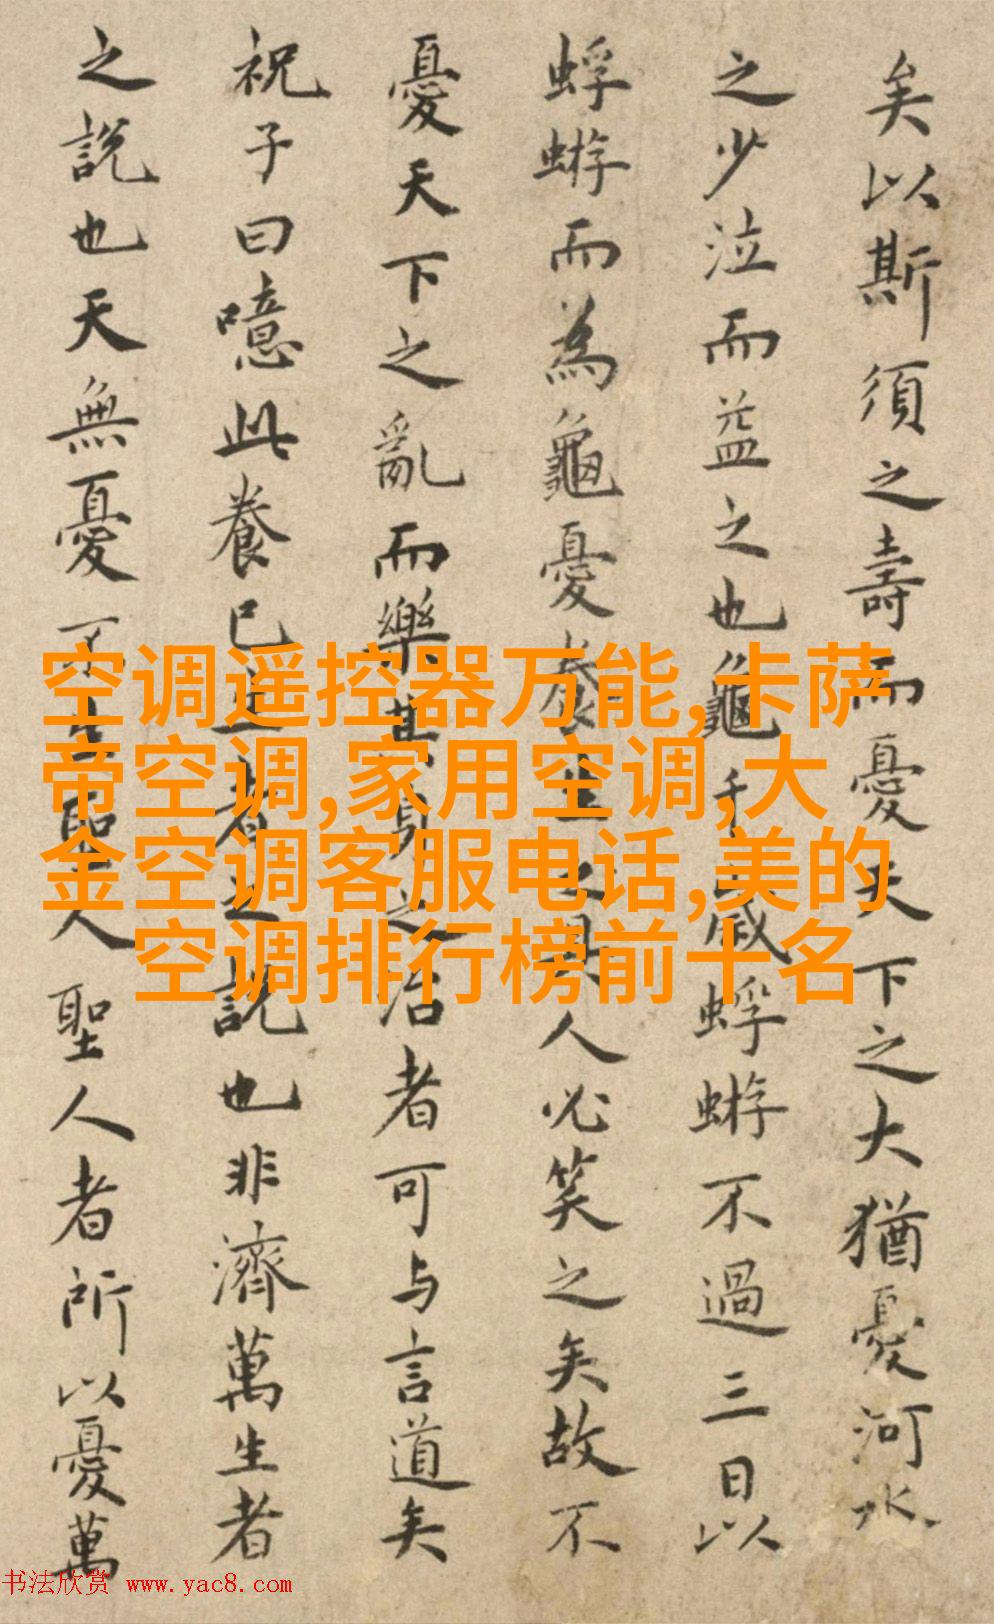 矣以斯須之壽而憂天下之大猶憂河水
之少泣而益之也龜千歲蜉蝣不過三日以
蜉蝣而為龜憂養生之具人必笑之矣故不
憂天下之亂而樂其身之治者可与言道矣
祝子曰噫此養己生者之說也非濟萬生者
之說也天無憂不生聖人聖人者所以憂萬
空调遥控器万能,卡萨
帝空调,家用空调,大
金空调客服电话,美的
空调排行榜前十名
书法欣赏 www.yac8.com